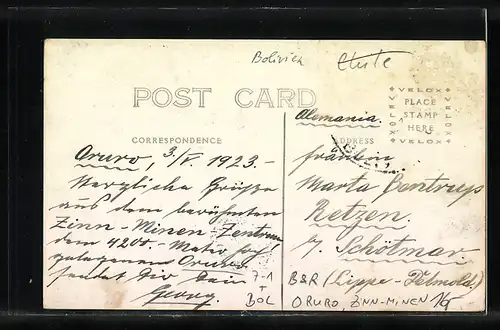 Bolivien
POST CARD
VELOX
PLACE
STAMP
HERE
VELOX
CORRESPONDENCE
ADDRESS
Alemania.
Oruro, 3/V. 1923.-
Herzliche Grüße
aus dem berühmten
Zinn-Minen-Zentrum
dem 4200.-Meter
gelegenen Oruro
sendet Dir Dein
Georg.
Fräulein
Marta
Retzen.
Schötmar.
(Lippe-Detmold)
7-1
BOL
B&R
ORURO, ZINN-MINEN